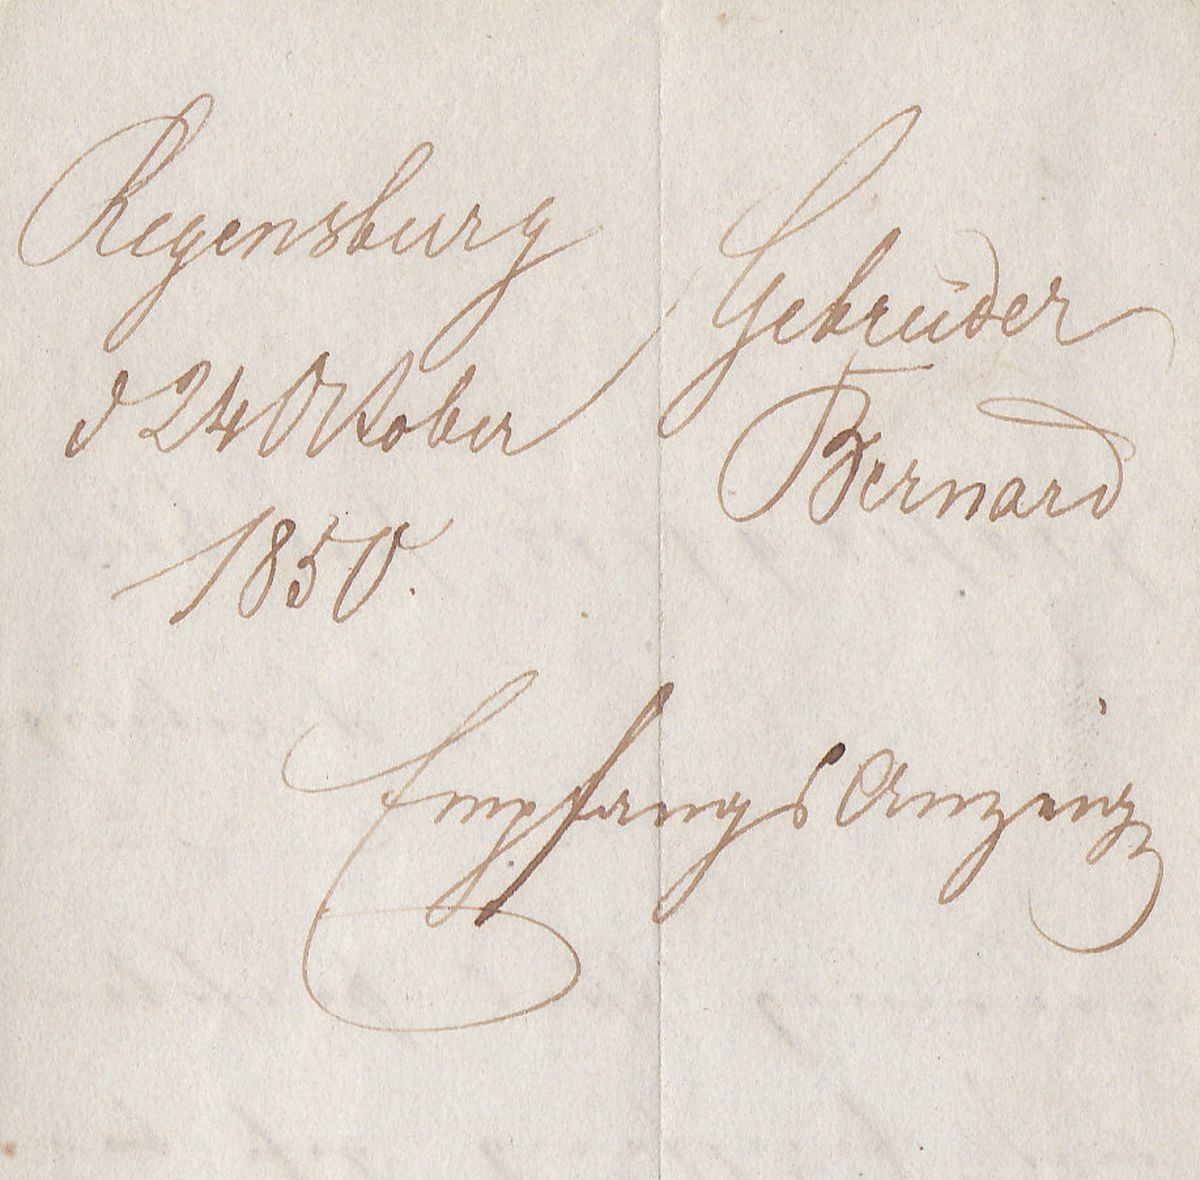 Regensburg
d 24 Oktober
1850.
Gebrüder
Bernard
Empfangs Anzeig